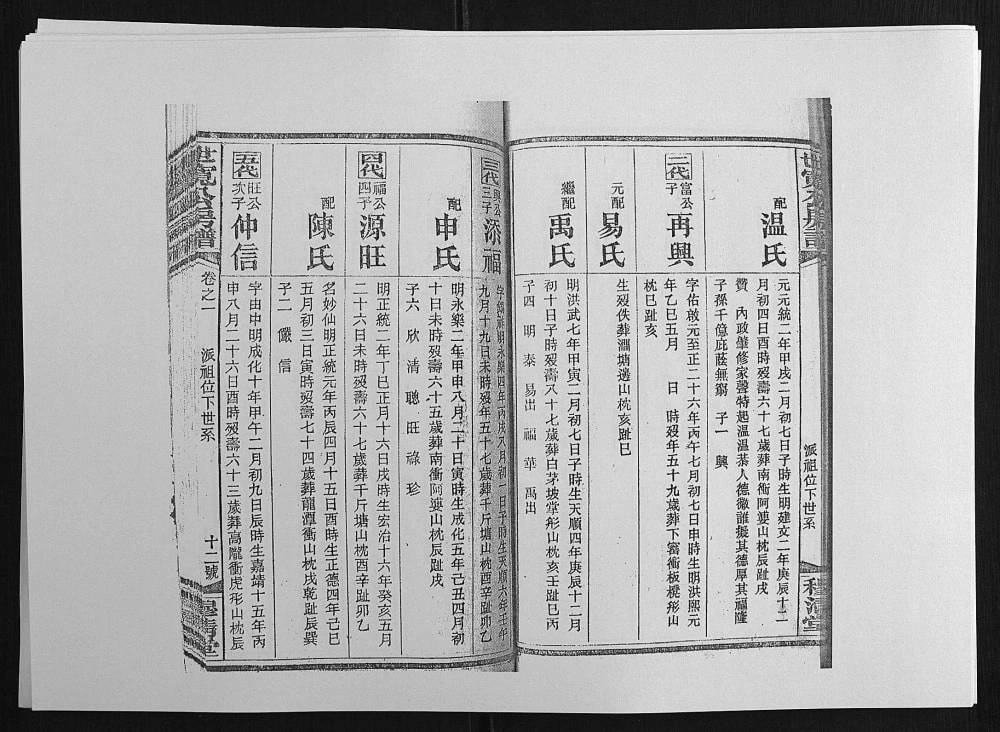 配
温氏
元元統二年甲戌二月初七日子時生明建文二年庚辰十二
月初四日酉時歿壽六十七歲葬南衝阿婆山枕辰趾戌
贊 內政肇修家聲特起溫溫恭人德徽誰擬其德厚其福隆
子孫千億庇蔭無窮 子一 興
二代
富公子
再興
字佑啟元至正二十六年丙午七月初七日申時生明洪熙元
年乙巳五月 日 時歿年五十九歲葬下窨衝板櫈形山
枕巳趾亥
元配
易氏
生歿佚葬㵎塘邊山枕亥趾巳
繼配
禹氏
明洪武七年甲寅二月初七日子時生天順四年庚辰十二月
初十日子時歿壽八十七歲葬白茅坡堂形山枕亥壬趾巳丙
子四 明 泰 易出 福 華 禹出
三代
興公三子
添福
明永樂四年丙戌八月初一日子時生天順六年壬午
九月十九日未時歿年五十七歲葬千斤塘山枕酉辛趾卯乙
配
申氏
明永樂二年甲申八月二十日寅時生成化五年己丑四月初
十日未時歿壽六十五歲葬南衝阿婆山枕辰趾戌
子六 欣 清 聰 旺 祿 珍
四代
福公四子
源旺
明正統二年丁巳正月十六日戌時生宏治十六年癸亥五月
二十六日未時歿壽六十七歲葬千斤塘山枕酉辛趾卯乙
配
陳氏
名妙仙明正統元年丙辰四月十五日酉時生正德四年己巳
五月初三日寅時歿壽七十四歲葬龍潭衝山枕戌乾趾辰巽
子二 儼 信
五代
旺公次子
仲信
字由中明成化十年甲午二月初九日辰時生嘉靖十五年丙
申八月二十六日酉時歿壽六十三歲葬高隴衝虎形山枕辰
世寬公房譜
卷之一
派祖位下世系
十二號
派祖位下世系